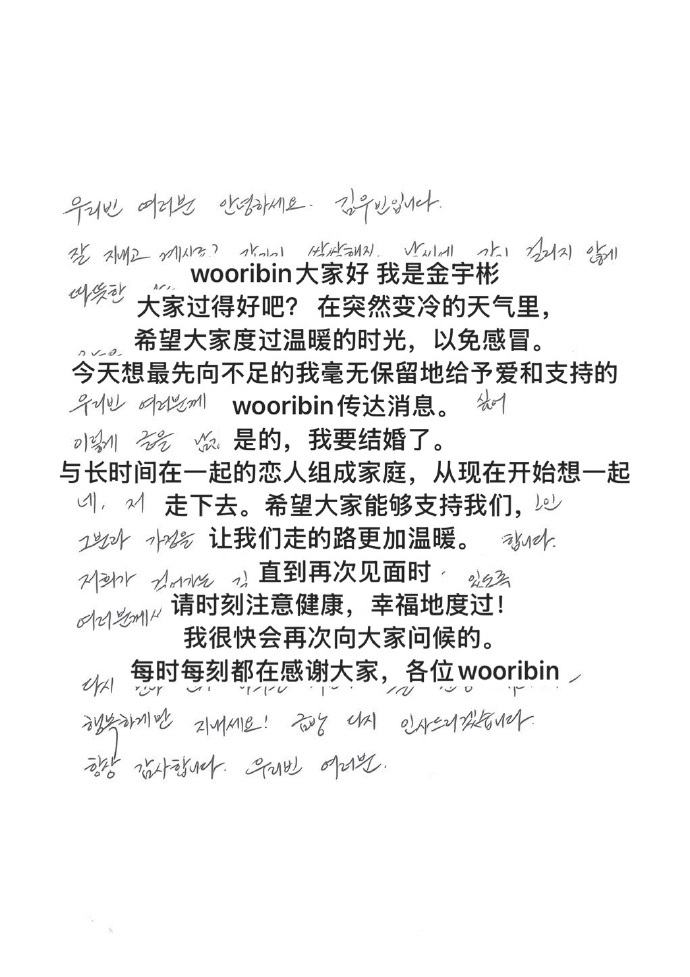 우리빈 여러분 안녕하세요. 김우빈입니다.
잘 지내고 계시죠? 갑자기 쌀쌀해진 날씨에 감기 걸리지 않게
wooribin大家好 我是金宇彬
따뜻한
大家过得好吧？ 在突然变冷的天气里，
希望大家度过温暖的时光，以免感冒。
今天想最先向不足的我毫无保留地给予爱和支持的
우리빈 여러분께 wooribin传达消息。 싶어
이렇게 글을 남 是的，我要结婚了。
与长时间在一起的恋人组成家庭，从现在开始想一起
네, 저 走下去。希望大家能够支持我们，
그분과 가정을 让我们走的路更加温暖。 합니다.
저희가 걸어가는 길 直到再次见面时 있도록
여러분께서 请时刻注意健康，幸福地度过！
我很快会再次向大家问候的。
每时每刻都在感谢大家，各位wooribin
다시
행복하게만 지내세요! 금방 다시 인사드리겠습니다.
항상 감사합니다. 우리빈 여러분.